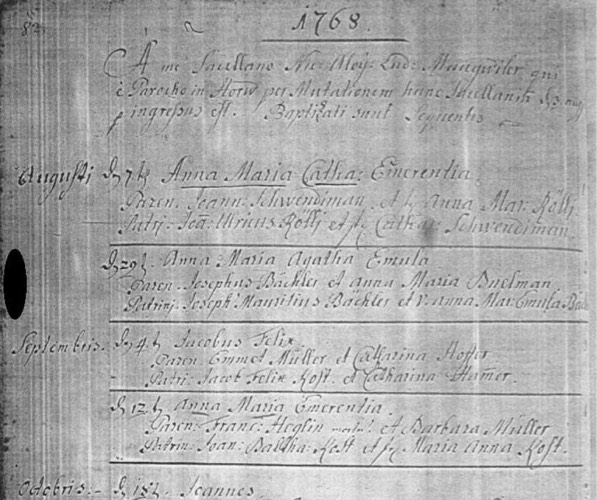 1768.
A me Sacellano Nic: Aloy: Lud: Mangwiler qui
è Parocho in Horw per Mutationem hanc Sacellaniā d. 3 aug
ingressus est. Baptizati sunt Sequentes
Augusti d. 7t Anna Maria Catha: Emerentia.
Paren. Joann: Schwendiman. et Anna Mar: Rölli
Patri: Joā: Ulricus Rölli et Catha: Schwendiman.
d. 29t. Anna: Maria Agatha Emula
Paren. Josephus Bächler et Anna Maria Buelman
Patrini: Joseph Mauritius Bächler et V. Anna Mar: Emula
Septembris. d. 4t Jacobus Felix
Paren Emmet Müller et Catharina Hoffer
Patri: Jacob Felix Kost. et Catharina Hamer.
d. 12t Anna Maria Emerentia.
Paren: Franc: Heglin et Barbara Müller
Patrin: Joan: Baltha: Kost et Maria Anna Kost.
Octobris.- d. 18t. Joannes